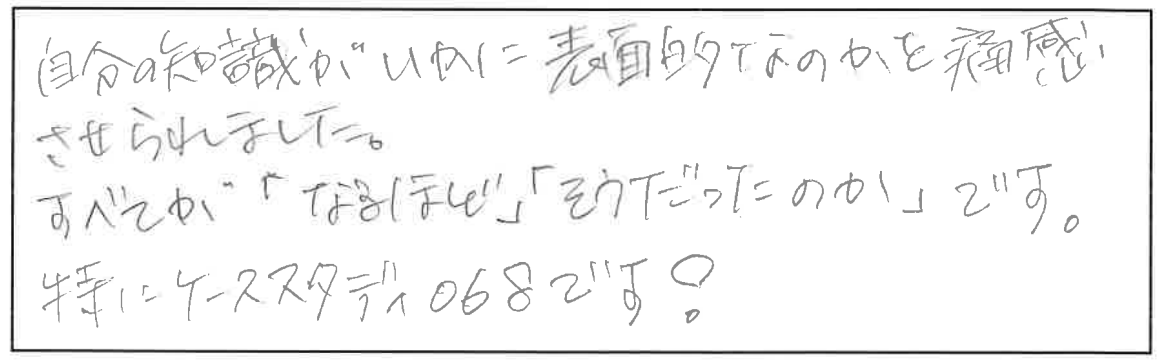 自分の知識がいかに表面的なのかを痛感
させられました。
すべてが「なるほど」「そうだったのか」です。
特にケーススタディ068です!